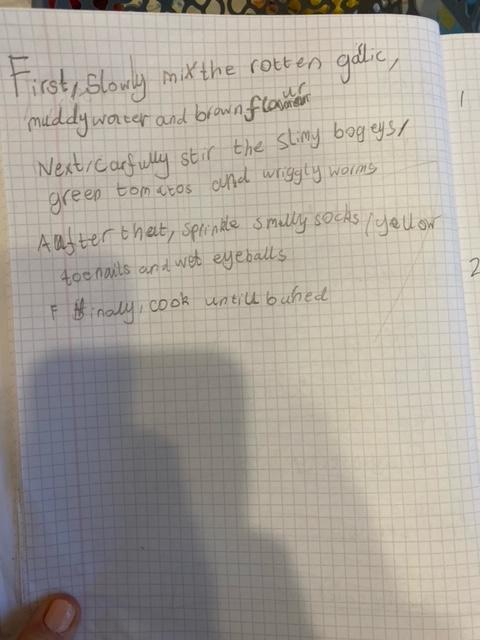 First, Slowly mix the rotten galic,
muddy water and brown flour
Next, carfully stir the slimy bogeys,
green tomatos and wriggly worms
After that, sprinkle smelly socks, yellow
toenails and wet eyeballs
Finaly, cook untill buhed
1
2